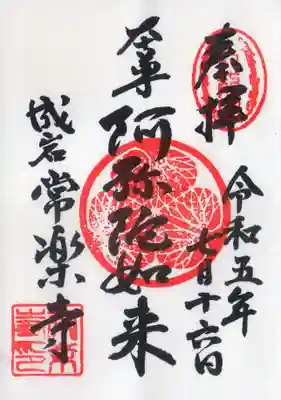 奉拝
令和五年
七月十六日
本尊
阿弥陀如来
常楽寺